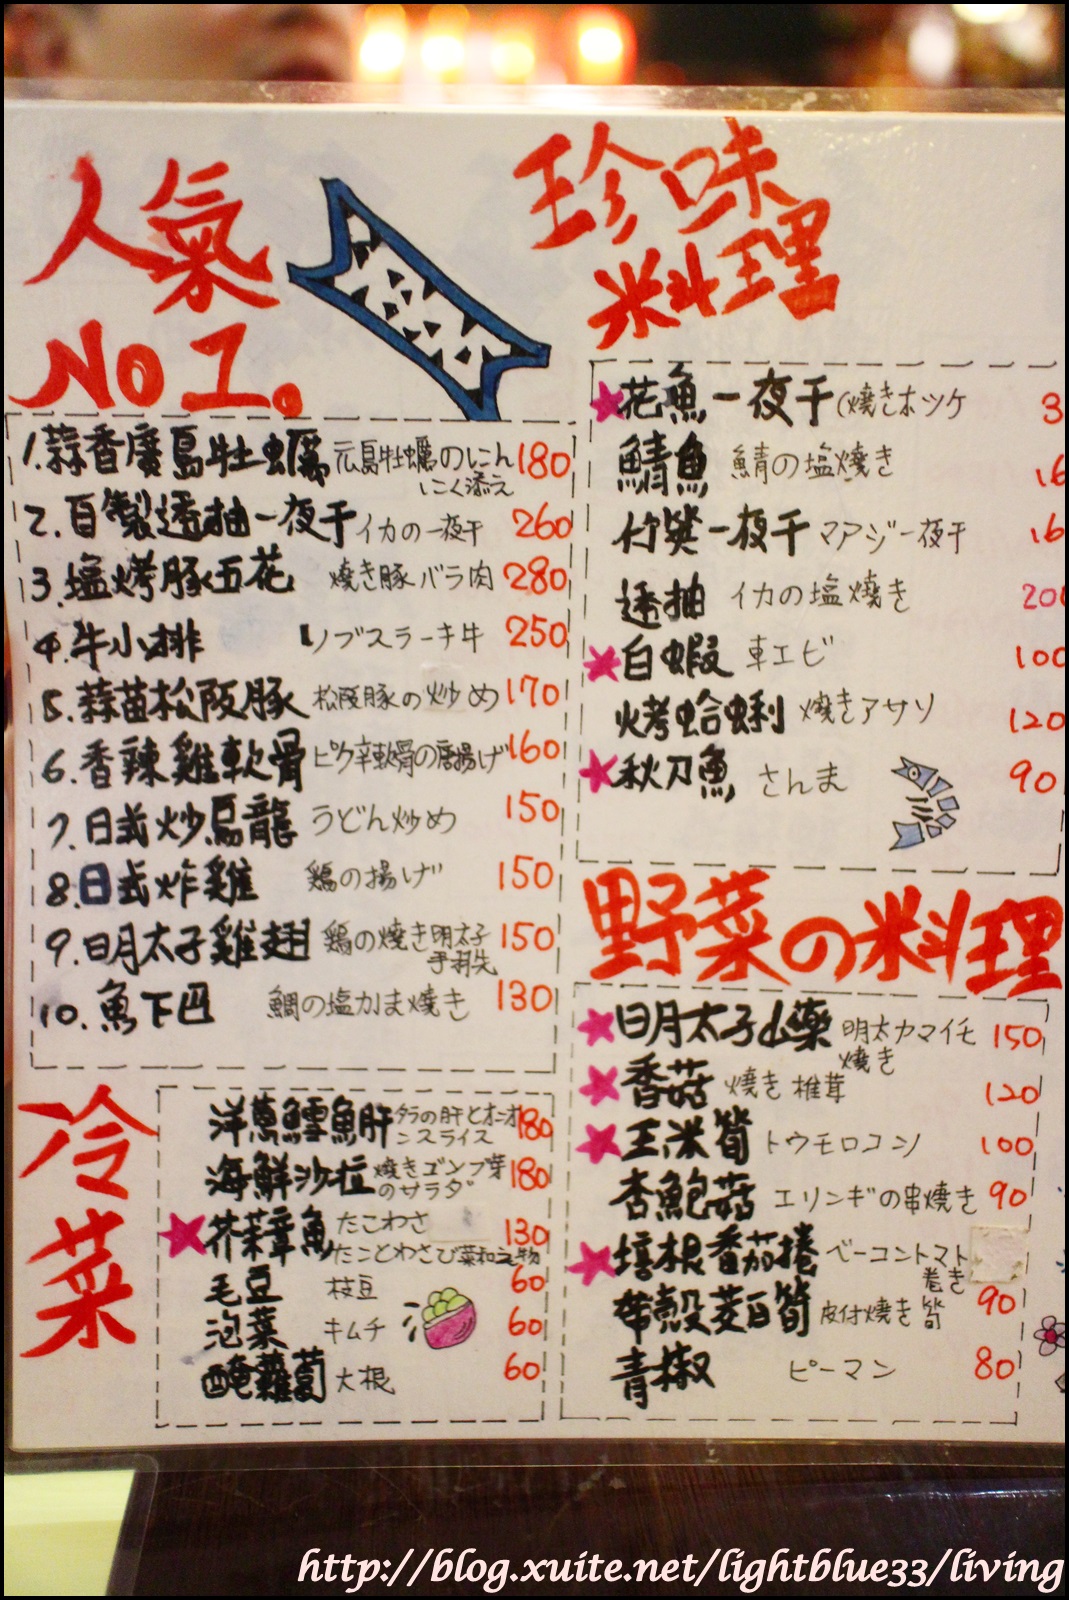 人氣
No 1。
1.蒜香廣島牡蠣 広島牡蠣のにん 180
にく添え
2.自製透抽一夜干 イカの一夜干 260
3.塩烤豚五花 燒き豚バラ肉 280
4.牛小排 ノブスラーキ牛 250
5.蒜苗松阪豚 松阪豚の炒め 170
6.香辣雞軟骨 ピク辛軟骨の唐揚げ 160
7.日式炒烏龍 うどん炒め 150
8.日式炸雞 鶏の揚げ 150
9.明太子雞翅 鶏の燒き明太子 150
手羽先
10.魚下巴 鯛の塩カま燒き 130
冷菜
洋蔥鱈魚肝 タラの肝とオニオ 180
ンスライス
海鮮沙拉 燒きゴンブ芽 180
のサラダ
芥茉章魚 たこわさ 130
たことわさび菜和え物
毛豆 枝豆 60
泡菜 キムチ 60
醃蘿蔔 大根 60
珍味
料理
花魚一夜干 (燒きホツケ 3
鯖魚 鯖の塩燒き 16
竹筴一夜干 マアジ一夜干 16
透抽 イカの塩燒き 200
白蝦 車エビ 100
烤蛤蜊 燒きアサソ 120
秋刀魚 さんま 90
野菜の料理
明太子山藥 明太カマイモ 150
燒き
香菇 燒き椎茸 120
玉米筍 トウモロコン 100
杏鮑菇 エリンギの串燒き 90
培根番茄捲 ベーコントマト
巻き
帶殼茭白筍 皮付燒き筍 90
青椒 ピーマン 80
http://blog.xuite.net/lightblue33/living